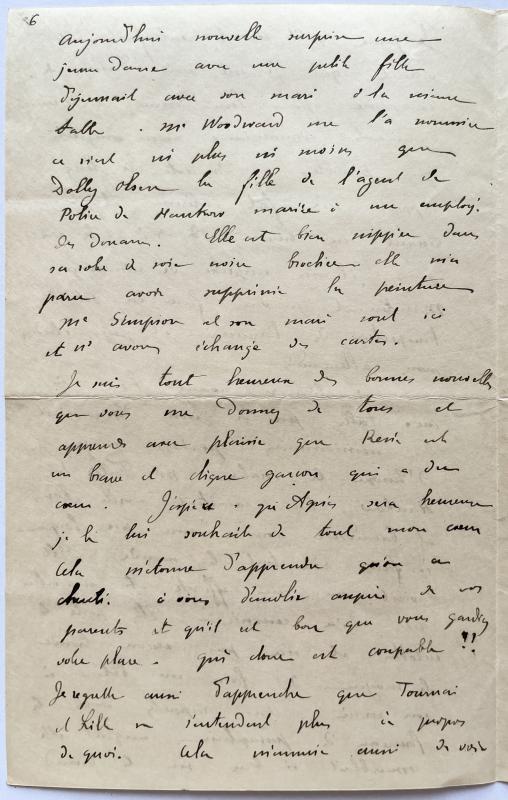 6
Aujourd'hui nouvelle surprise une
jeune dame avec une petite fille
déjeunait avec son mari à la même
table. Me Woodward me l'a nommée
ce n'est ni plus ni moins que
Dolly Olsen la fille de l'agent de
Police de Hankow mariée à un employé
des Douanes. Elle est bien nippée dans
sa robe de soie noire brochée elle m'a
paru avoir supprimé la peinture
Me Simpson et son mari sont ici
et ns avons échangé des cartes.
Je suis tout heureux des bonnes nouvelles
que vous me donnez de tous et
apprends avec plaisir que est
un brave et digne garçon qui a du
cœur. J'espère qu'Agnès sera heureuse
je le lui souhaite de tout mon cœur
Cela m'étonne d'apprendre qu'on a
à vous démolir auprès de vos
parents et qu'il est bon que vous gardiez
votre place. qui donc est coupable !!
Je regrette aussi d'apprendre que Tournai
et Lille ne s'entendent plus à propos
de quoi. Cela m'ennuie aussi de voir